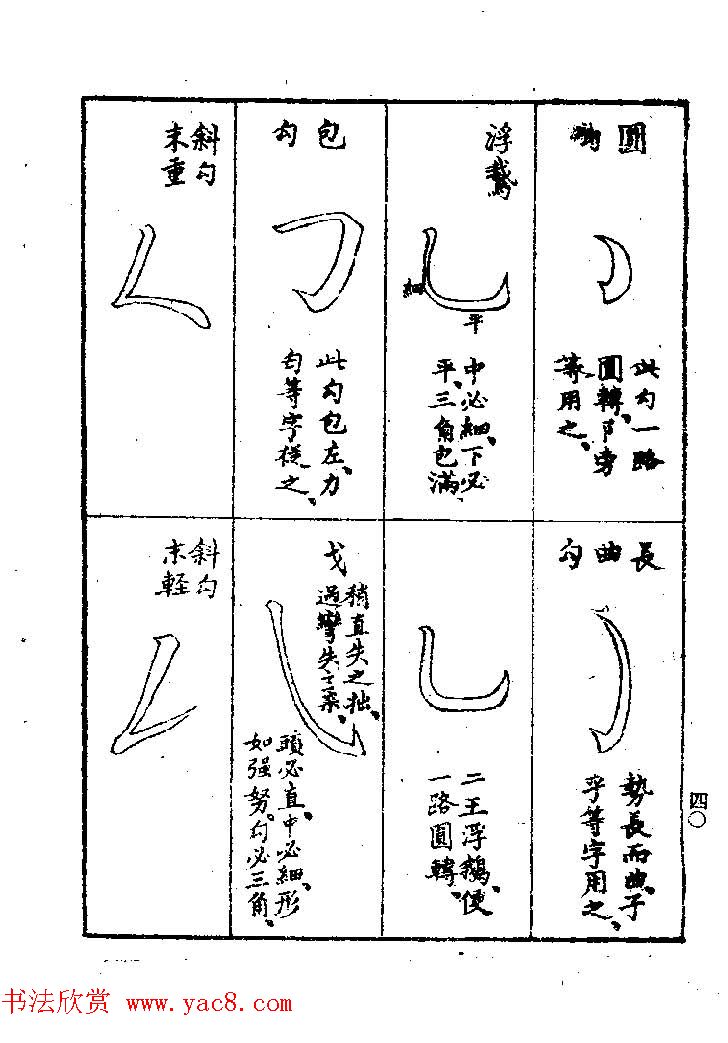 圓
此勾一路
圓轉、阝旁
等用之、
浮鵞
細
平
中必細、下必
平、三角包滿
包勾
此勾包左、力
匀等字從之、
斜勾
末重
長曲勾
勢長而曲、子
乎等字用之、
二王浮鵝、便
一路圓轉、
戈
稍直失之拙、
過彎失之柔、
頭必直、中必細、形
如强努、勾必三角、
斜勾
末軽
四〇
书法欣赏 www.yac8.com